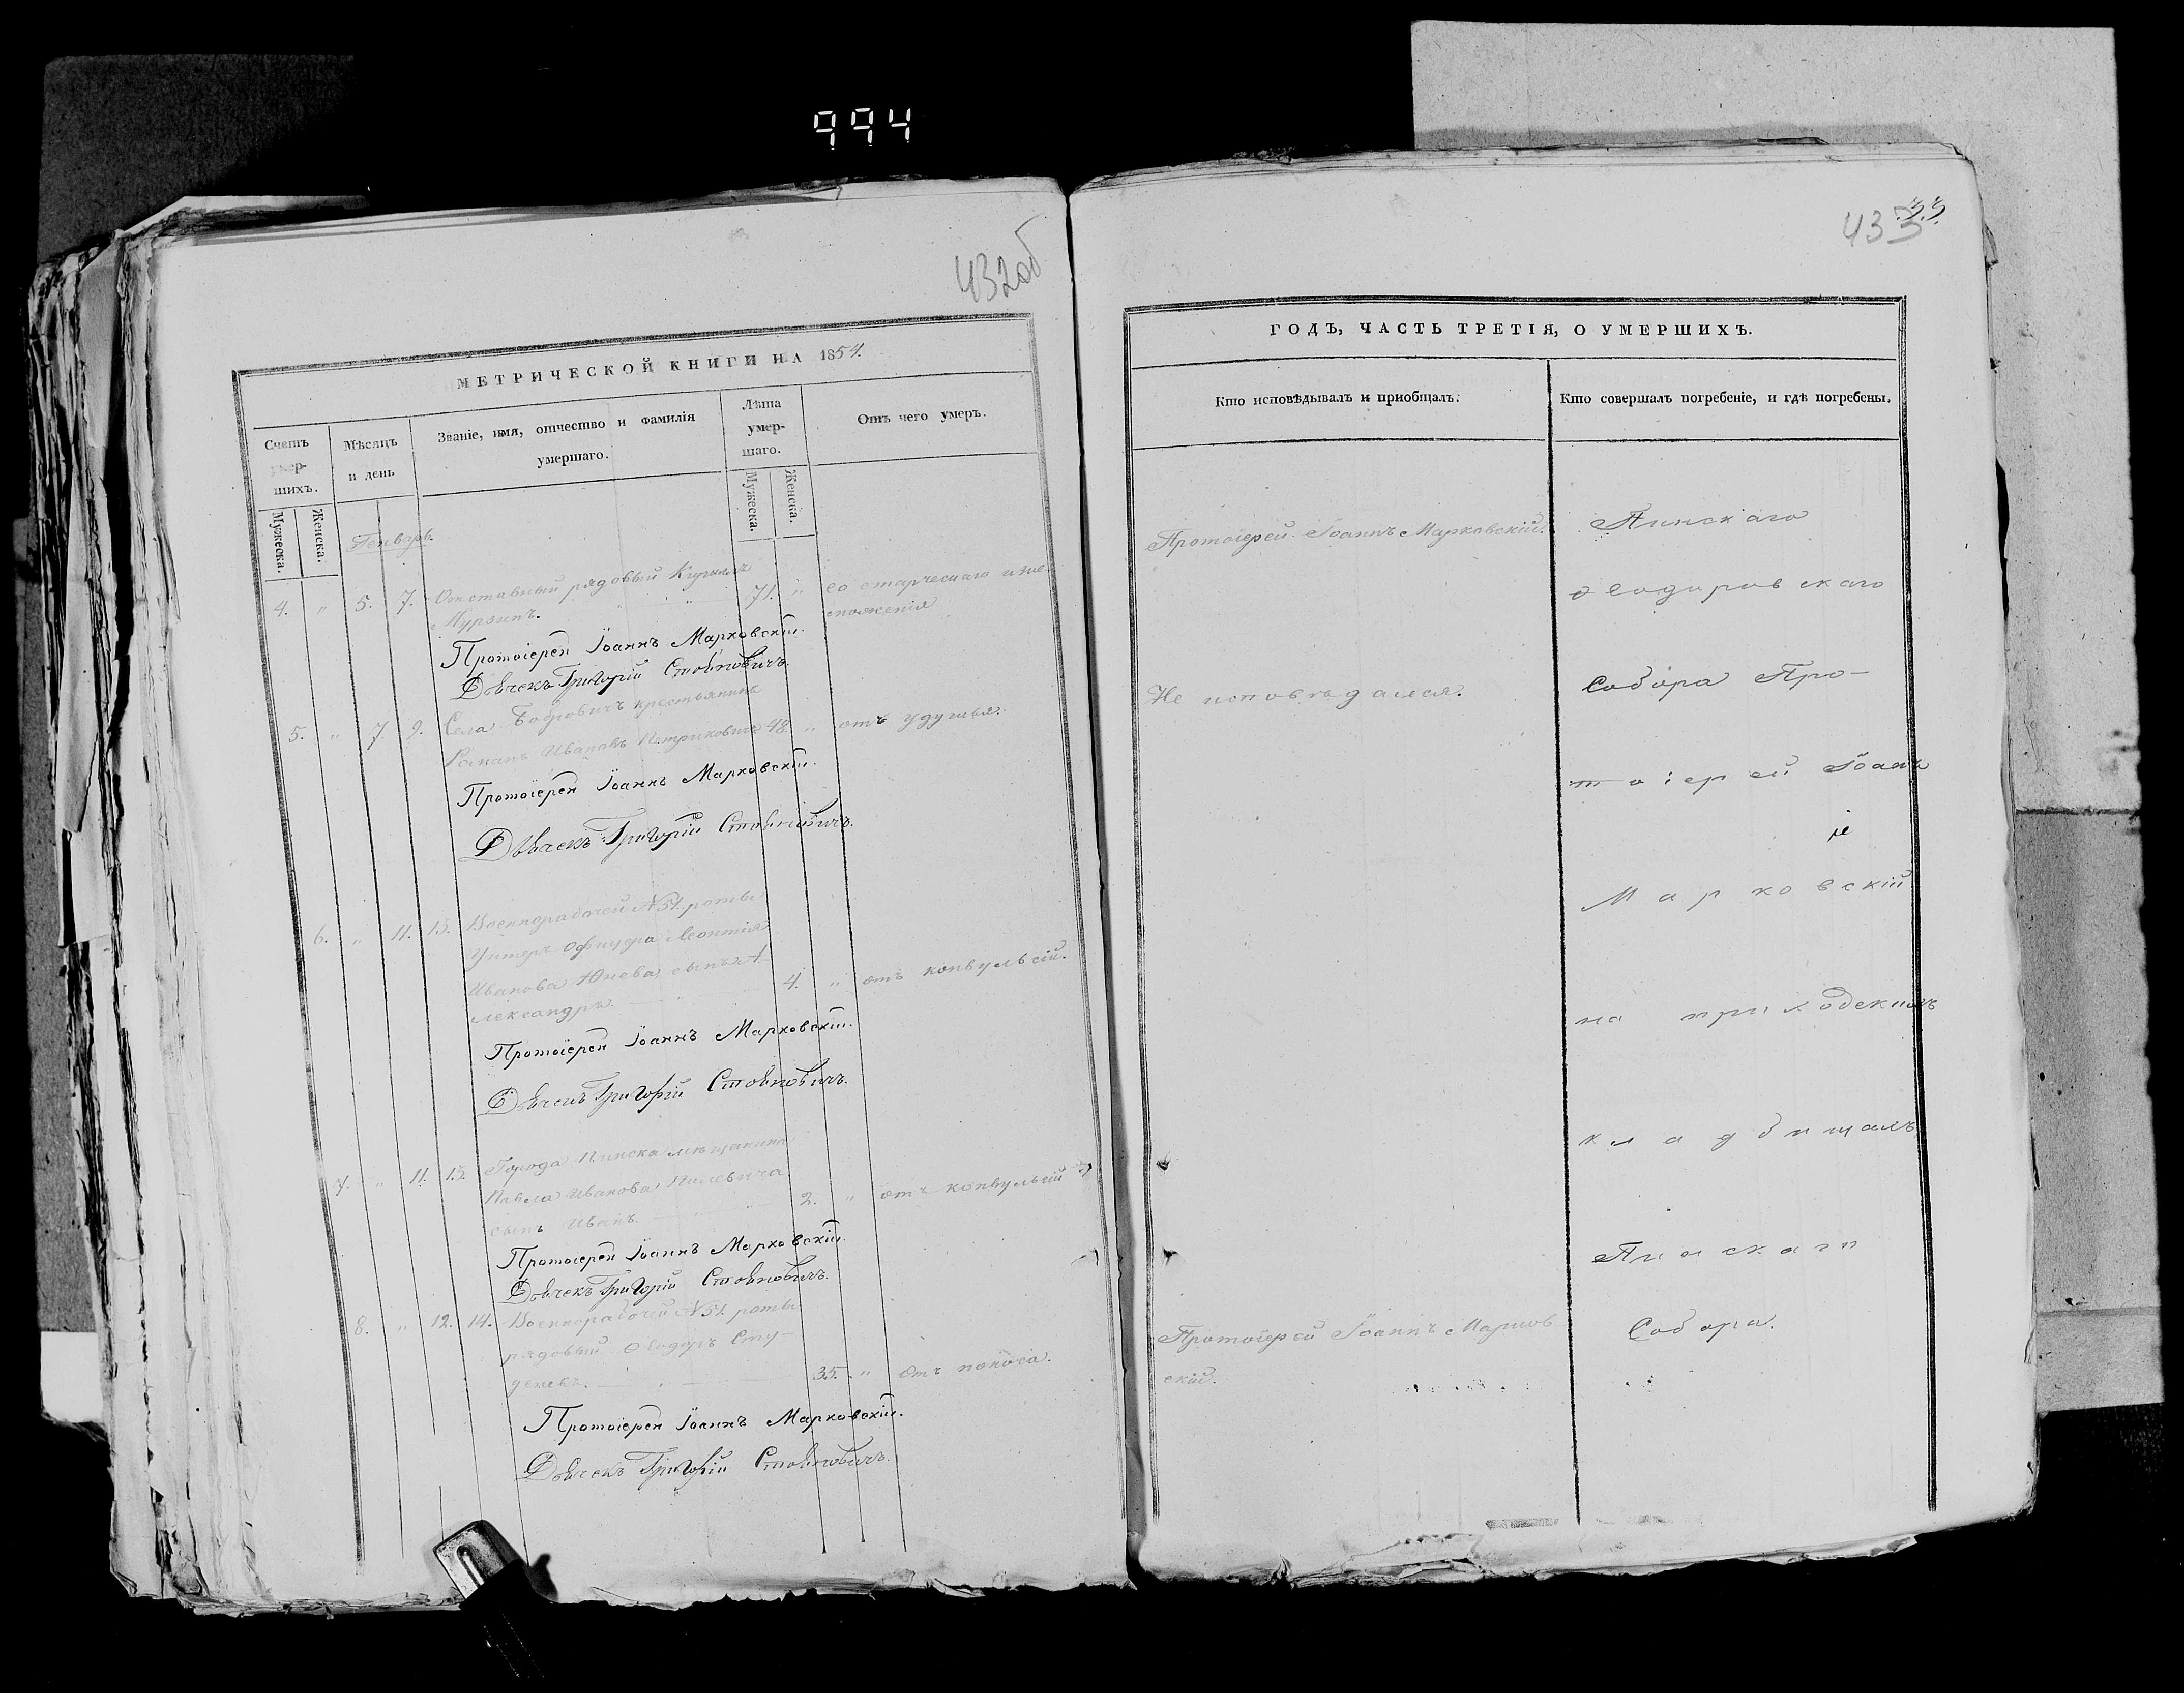 994
432об
МЕТРИЧЕСКОЙ КНИГИ НА 1854.
Счетъ умер-шихъ.
Мѣсяцъ и день
Званіе, имя, отчество и фамилія умершаго.
Лѣта умер-шаго.
Отъ чего умеръ.
Мужеска.
Женска.
Мужеска.
Женска.
Генварь.
4. " 5. 7. Отставный рядовый Кирилъ 71. " со старческаго изне-
Мурзинъ. " " моженія
Протоіерей Іоаннъ Марковскій.
Дьячекъ Григорій Стойновичъ.
5. " 7 9. Села Бобровичъ крестьянинъ
Романъ Ивановъ Петриковичъ 48. " отъ удушья.
Протоіерей Іоаннъ Марковскій.
Дьячекъ Григорій Стойновичъ.
6. " 11. 13. Военнорабочей №51. роты
Унтеръ Офицера Леонтія
Иванова Юнева сынъ А-
лександръ. 4. " отъ конвульсій.
Протоіерей Іоаннъ Марковскій.
Дьячекъ Григорій Стойновичъ.
7. " 11. 13. Города Пинска мѣщанина
Павла Иванова Пилевича
сынъ Иванъ. 2. " отъ конвульсій
Протоіерей Іоаннъ Марковскій.
Дьячекъ Григорій Стойновичъ.
8. " 12. 14. Военнорабочей №51. роты
рядовый Ѳеодоръ Сту-
деневъ. 35. " отъ поноса.
Протоіерей Іоаннъ Марковскій.
Дьячекъ Григорій Стойновичъ.
33.
433
ГОДЪ, ЧАСТЬ ТРЕТІЯ, О УМЕРШИХЪ.
Кто исповѣдывалъ и приобщалъ.
Кто совершалъ погребеніе, и гдѣ погребены.
Протоіерей Іоаннъ Марковскій.
Не исповѣдался.
Протоіерей Іоаннъ Марков
скій.
Пинскаго
Ѳеодоровскаго
Собора Про-
тоіерей Іоаннъ
Марковскій
на приходскихъ
кладбищахъ
Пинскаго
Собора.